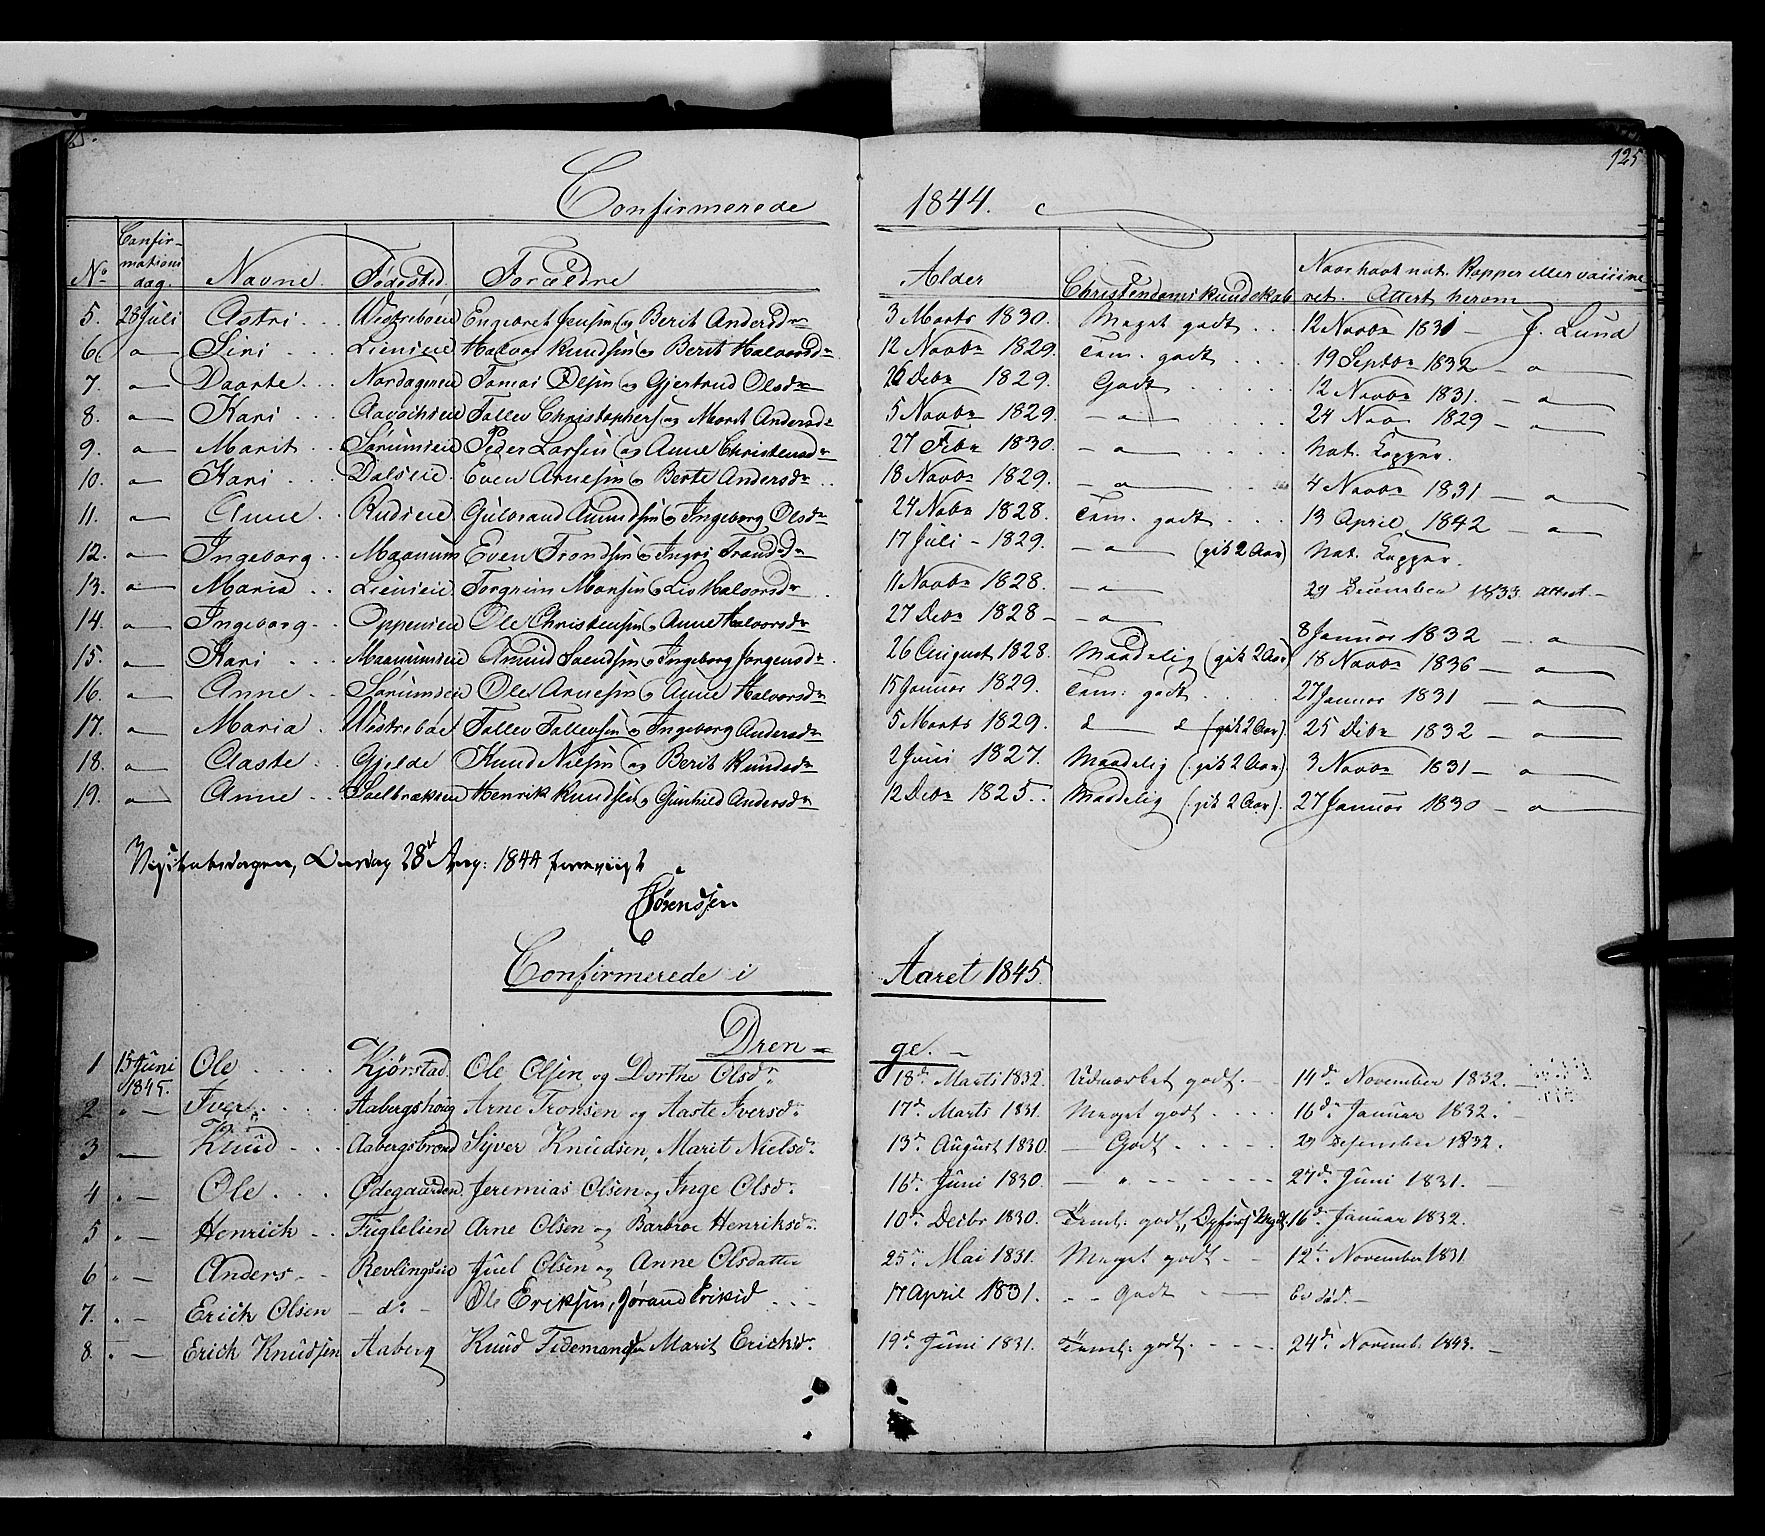 125
Confirmerede 1844.
No Confirmations dag. Navne Fødested Forældre Alder Christendomskundskab Naar havt nat. Kopper eller vaccineret. Attest herom
5. 28 Juli Astri Westreboeie Engebret Jensen og Berit Andersdr 3 Marts 1830. Meget godt 12 Novbr 1831 – J. Lund
6 " Siri Lieneie Halvor Knudsen og Berit Halvorsdr 12 Novbr 1829. Tem. godt 19 Septbr 1832 – "
7. " Daarte Nordageneie Tomas Olsen og Gjertrud Olsdr 26 Debr 1829. Godt 12 Novbr 1831. – "
8. " Kari Tollev Christophers og Marit Andersdr 5 Novbr 1829. – " 24 Nov 1829 – "
9. " Marit Sørumseie Peder Larsen og Anne Christensdr 27 Febr 1830. – " Nat. Kopper.
10. " Kari Dalseie Even Arnesen og Berte Andersdr 18 Novbr 1829. – " 4 Novbr 1831 – "
11. " Anne Rudseie Gulbrand Amundsen og Ingeborg Olsdr 24 Nobr 1828. Tem. godt 13 April 1842 – "
12. " Ingeborg Maanum Even Trondsen og Ingri Trondsdr 17 Juli – 1829. – " (gik 2 Aar) Nat. Kopper.
13. " Maria Lieneie Torgrim Monsen og Lis Halvorsdr 11 Novbr 1828. – " 29 December 1833 attest –
14. " Ingeborg Oppeneie Ole Christensen og Anne Halvorsdr 27 Debr 1828 – " 8 Januar 1832 – "
15. " Kari Maanumseie Amund Svendsen og Ingeborg Jørgensdr 26 August 1828. Maadelig (gik 2 Aar) 18 Novbr 1836 – "
16. " Anne Sørumseie Ole Arnesen og Anne Halvorsdr 15 Januar 1829. Tem. godt 27 Januar 1831 – "
17. " Maria Westreboe Tollev Tollevsen og Ingeborg Andersdr 5 Marts 1829. d d (gik 2 Aar). 25 Debr 1832 – "
18. " Aaste Gjelde Knud Nielsen og Berit Knudsdr 2 Juni 1827. Maadelig (gik 2 Aar) 3 Novbr 1831 – "
19. " Anne Henrik Knudsen og Gunhild Andersdr 12 Debr 1825. Maadelig (gik 2 Aar). 27 Januar 1830 – "
28d Aug: 1844
Sørensen
Confirmerede i Aaret 1845.
Drenge.
1 15 Juni 1845. Ole Kjørstad. Ole Olsen og Dorthe Olsdr 18d Marts 1832. Udmærket godt 14d November 1832.
2 " Iver Aabergshoug Arne Tronsen og Aaste Iversdr 17d Marts 1831. Meget godt 16d Januar 1832.
3 – Knud Aabergsbraad Syver Knudsen, Marit Nielsdr 13d August 1830. – Godt 29 Desember 1832.
4 " Ole Ødegaarden Jeremias Olsen og Inge Olsdr 16d Juni 1830. – " 27d Juni 1831.
5 " Henrich Fuglelien Arne Olsen og Barbroe Henriksdr 10d Decbr 1830. Temel. godt, Opførs. Ugdl. 16d Januar 1832.
6 " Anders Revlingseie Juel Olsen og Anne Olsdatter 25d Mai 1831. Meget godt 12d November 1831
7. " Erick Olsen – do – Ole Eriksen, Jørand Eriksd 17 April 1831. Godt
8. " Erick Knudsen Aaberg Knud Tidemandsen Marit Ericksdr 19d Juni 1831. Temel. godt. 24d Novemb. 1843.